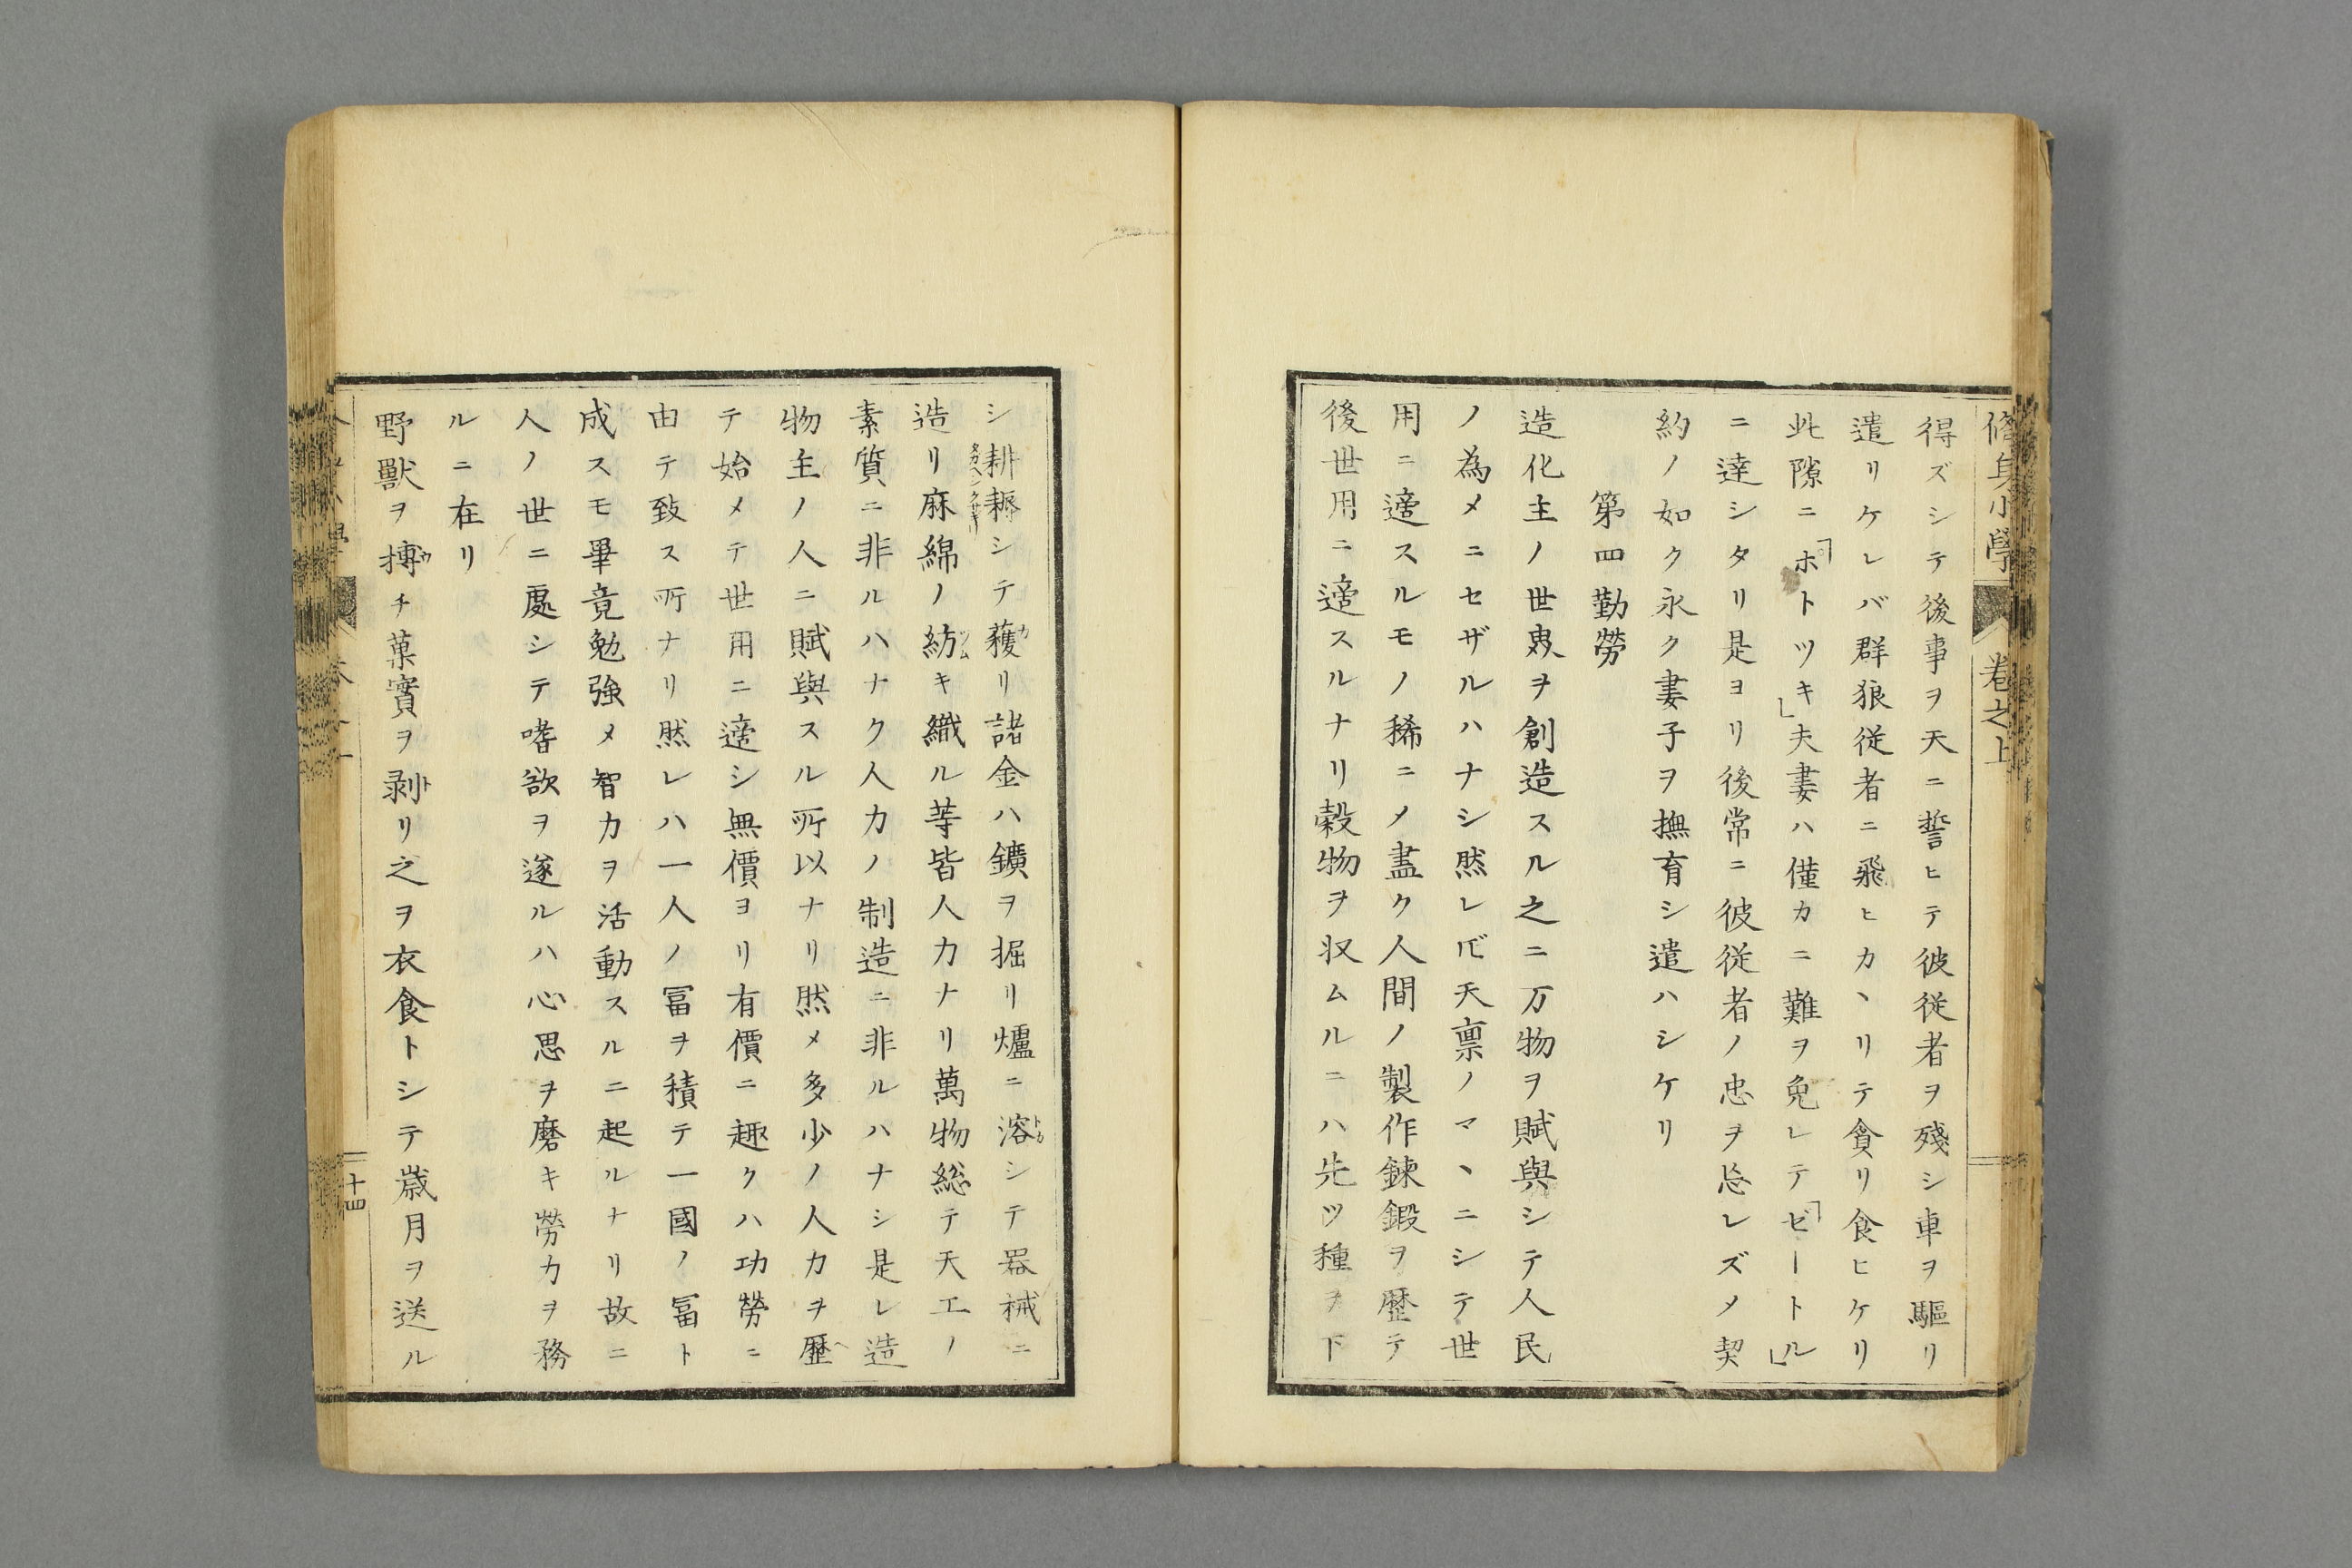 修身小學 卷之上
得ズシテ後事ヲ天ニ誓ヒテ彼従者ヲ殘シ車ヲ驅リ
遣リケレバ群狼従者ニ飛ヒカヽリテ貪リ食ヒケリ
此隙ニ「ホトツキ」夫妻ハ僅カニ難ヲ免レテ「ゼートル」
ニ達シタリ是ヨリ後常ニ彼従者ノ忠ヲ忘レズメ契
約ノ如ク永ク妻子ヲ撫育シ遣ハシケリ
第四勤勞
造化主ノ世界ヲ創造スル之ニ万物ヲ賦與シテ人民
ノ為メニセザルハナシ然レ𪜈天禀ノマヽニシテ世
用ニ適スルモノ稀ニメ盡ク人間ノ製作鍊鍛ヲ歴テ
後世用ニ適スルナリ穀物ヲ収ムルニハ先ツ種ヲ下
シ耕耨シテ穫リ諸金ハ鑛ヲ掘リ爐ニ溶シテ器械ニ
造リ麻綿ノ紡キ織ル等皆人力ナリ萬物総テ天工ノ
素質ニ非ルハナク人力ノ制造ニ非ルハナシ是レ造
物主ノ人ニ賦與スル所以ナリ然メ多少ノ人力ヲ歴
テ始メテ世用ニ適シ無價ヨリ有價ニ趣クハ功勞ニ
由テ致ス所ナリ然レハ一人ノ冨ヲ積テ一國ノ冨ト
成スモ畢竟勉強メ智力ヲ活動スルニ起ルナリ故ニ
人ノ世ニ處シテ嗜欲ヲ遂ルハ心思ヲ磨キ勞力ヲ務
ルニ在リ
野獸ヲ摶チ菓實ヲ剥リ之ヲ衣食トシテ歳月ヲ送ル
十四